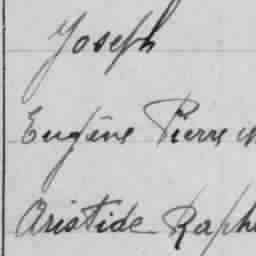 Joseph
Eugène Pierre
Aristide Raph